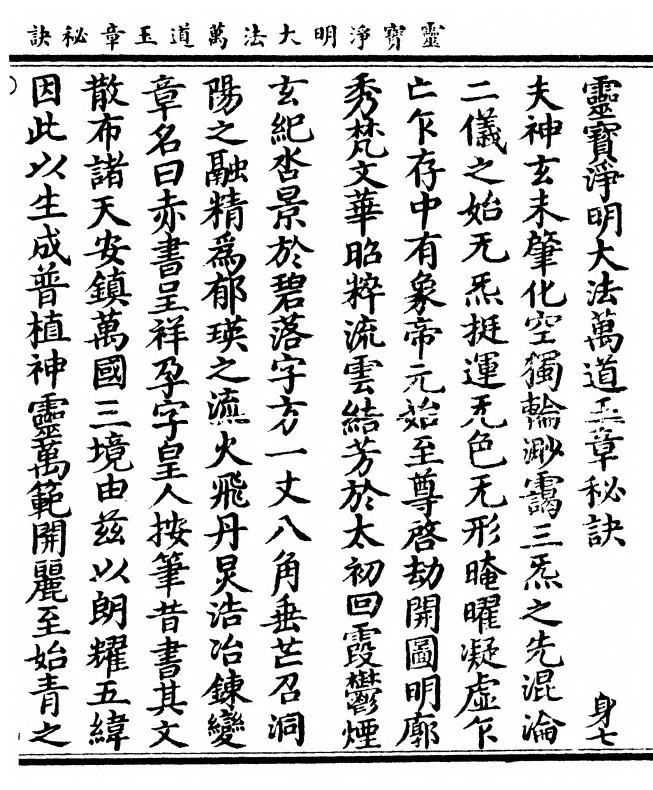 靈寳淨明大法萬道玉章秘訣
靈寳淨明大法萬道玉章秘訣 身七
夫神玄未肇化空獨輪渺靄三炁之先混淪
二儀之始无炁挺運无色无形晻曜凝虛乍
亡乍存中有象帝元始至尊啓劫開圖明廓
秀梵文華昭粹流雲結芳於太初回霞鬱煙
玄紀杳景於碧落字方一丈八角垂芒召洞
陽之融精爲郁瑛之流火飛丹炅浩冶鍊變
章名曰赤書呈祥孕字皇人按筆昔書其文
散布諸天安鎮萬國三境由兹以朗耀五緯
因此以生成普植神靈萬範開麗至始青之